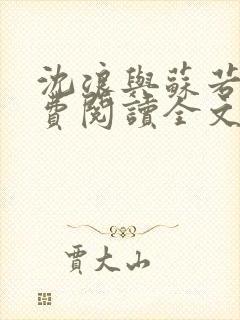 沈浪與蘇若
費閱讀全文
賈大山